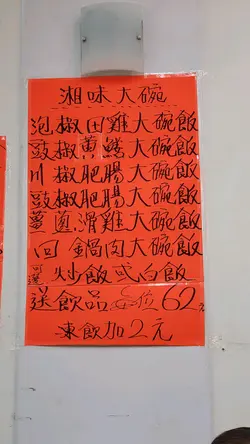 湘味大碗
泡椒田雞大碗飯
豉椒黃鱔大碗飯
川椒肥腸大碗飯
豉椒肥腸大碗飯
薑蔥滑雞大碗飯
回鍋肉大碗飯
可選炒飯或白飯
送飲品每位62元
凍飲加2元